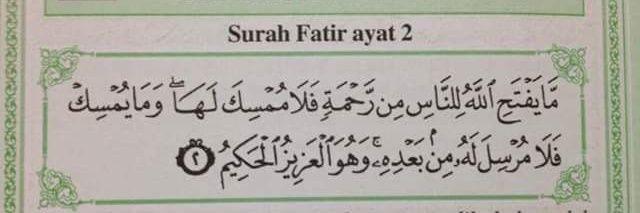 Surah Fatir ayat 2
مَّا يَفْتَحِ ٱللَّهُ لِلنَّاسِ مِن رَّحْمَةٍ فَلَا مُمْسِكَ لَهَا ۖ وَمَا يُمْسِكْ
فَلَا مُرْسِلَ لَهُۥ مِنۢ بَعْدِهِۦ ۚ وَهُوَ ٱلْعَزِيزُ ٱلْحَكِيمُ ٢